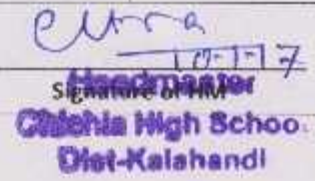 10-1-17
Signature of HM
Headmaster
High Schoo
Dist-Kalahandi